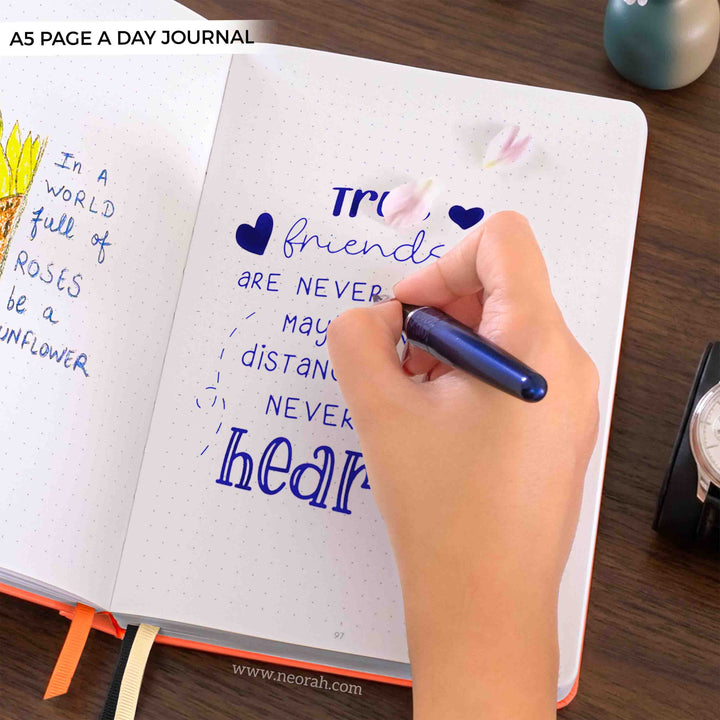 A5 PAGE A DAY JOURNAL
In A
WORLD
full of
ROSES
be a
UNFLOWER
friends
aRE NEVER
may
distan
NEVER
hear
97
www.neorah.com